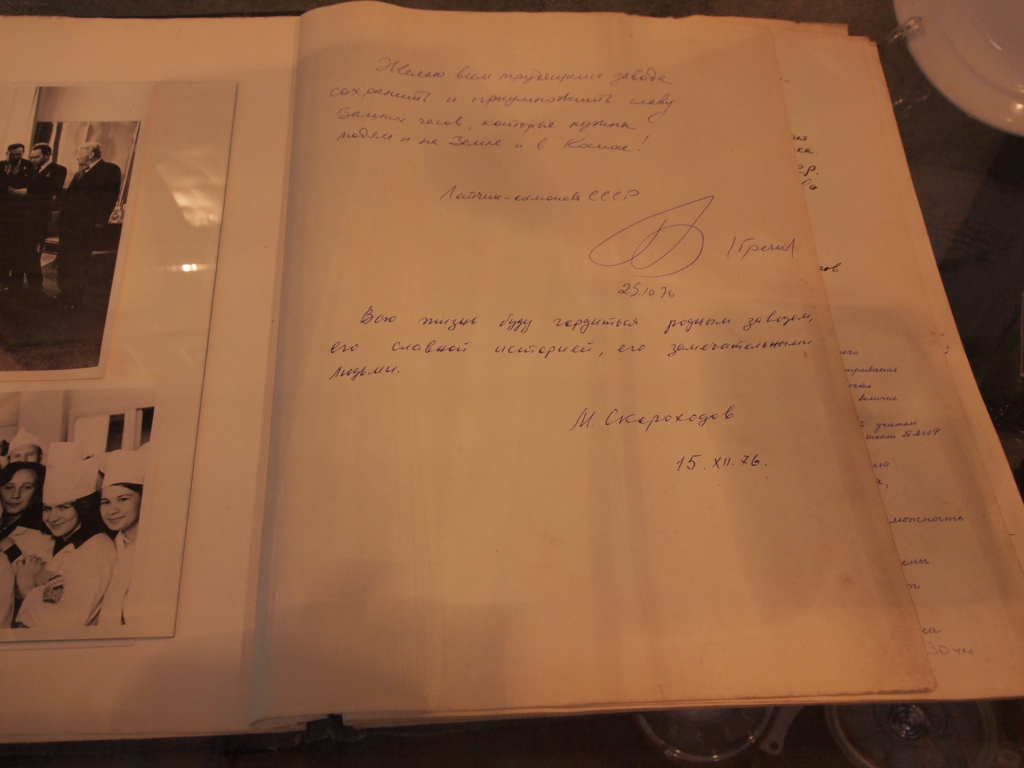 Желаю всем трудящимся завода
сохранить и приумножить славу
Ваших часов, которые нужны
людям и на Земле и в Космосе!
Летчик-космонавт СССР
/Гречко/
25.10.76
Всю жизнь буду гордиться родным заводом,
его славной историей, его замечательными
людьми.
М. Скороходов
15. XII. 76.
можность